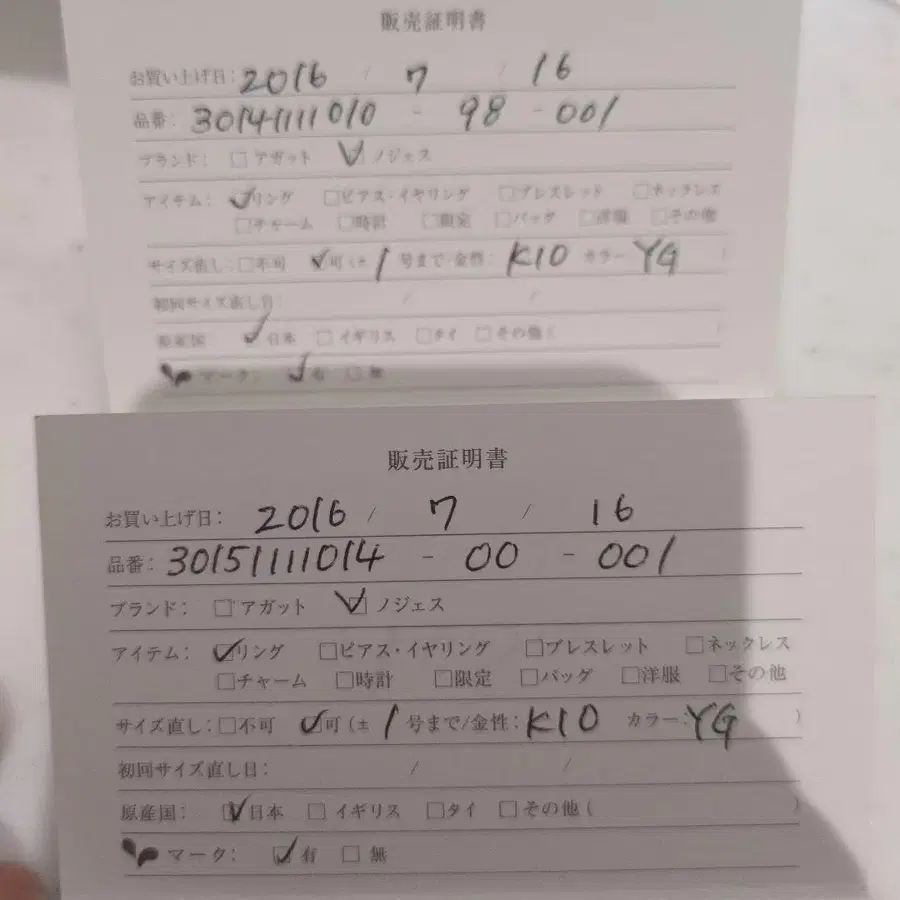 販売証明書
お買い上げ日: 2016 / 7 / 16
品番: 30141111010 - 98 - 001
ブランド: □ アガット ☑ ノジェス
アイテム: ☑リング □ピアス・イヤリング □ブレスレット □ネックレス
□チャーム □時計 □限定 □バッグ □洋服 □その他
サイズ直し: □不可 ☑可 (± 1 号まで/金性: K10 カラー YG )
初回サイズ直し日: / /
原産国: ☑日本 □イギリス □タイ □その他 ( )
マーク: ☑有 □無
販売証明書
お買い上げ日: 2016 / 7 / 16
品番: 30151111014 - 00 - 001
ブランド: □アガット ☑ノジェス
アイテム: ☑リング □ピアス・イヤリング □ブレスレット □ネックレス
□チャーム □時計 □限定 □バッグ □洋服 □その他
サイズ直し: □不可 ☑可 (± 1 号まで/金性: K10 カラー: YG )
初回サイズ直し日: / /
原産国: ☑日本 □イギリス □タイ □その他 ( )
マーク: ☑有 □無